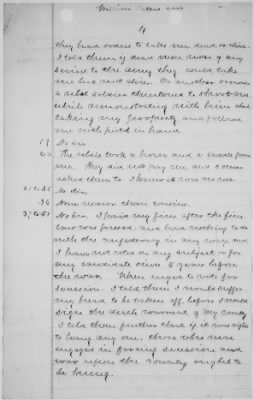 4
they had orders to take me dead or alive.
I told them if dead men was of any
service to the army they could take
me but not alive. On another occasion
a rebel soldier threatened to shoot me
while remonstrating with him about
taking my property and followed
me with pistol in hand
No Sir.
The rebels took a horse and a saddle from
me. They did not pay me and I never
asked them to I knew it was no use
No Sir
None nearer than cousins.
No Sir. I paid my fine after the fine
law was passed, and had nothing to do
with the confederacy in any way, and
I have not voted on any subject or for
any candidate since 2 years before
the war. When urged to vote for
secession. I told them I would suffer
my head to be taken off, before I would
sign the death warrant of my country
I told them further that if it was right
to hang any one, those who was
engaged in forcing secession and
war upon the country ought to
be hung.